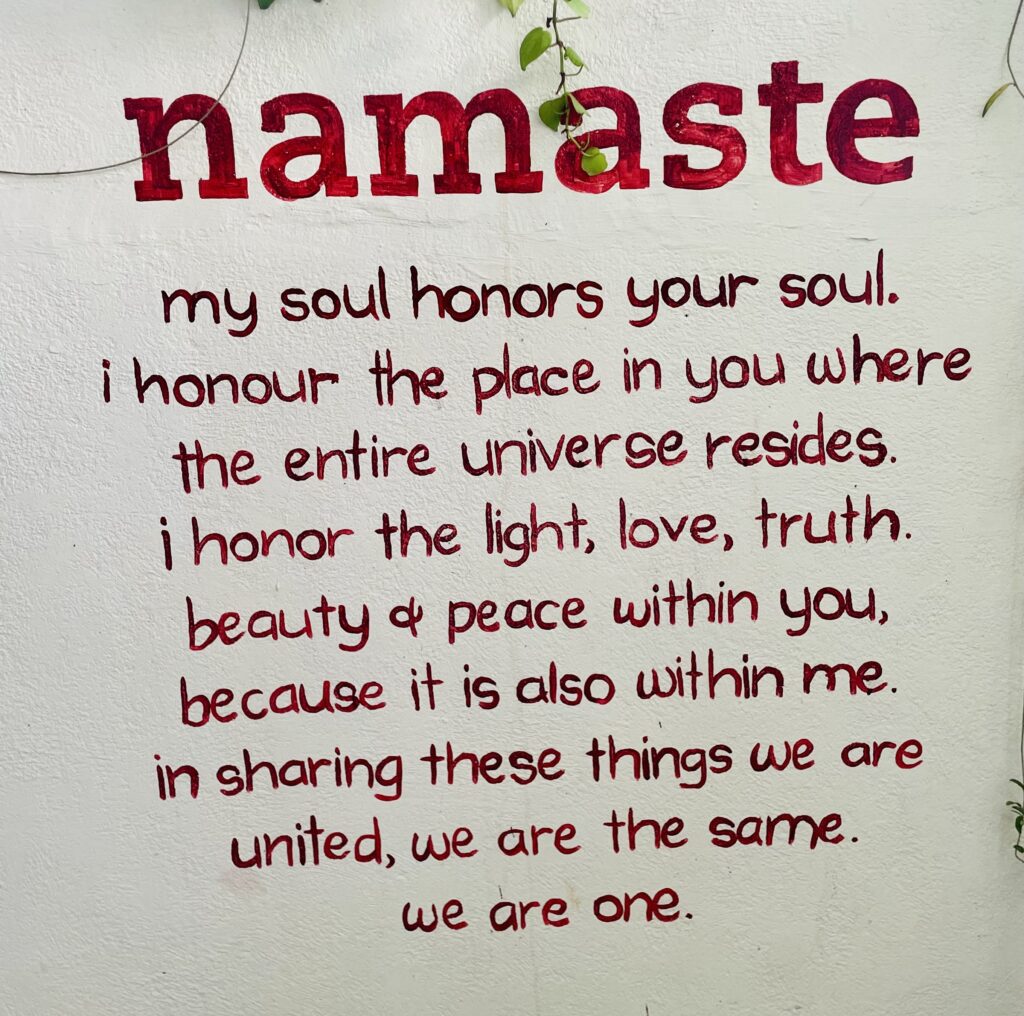 namaste
my soul honors your soul.
i honour the place in you where
the entire universe resides.
i honor the light, love, truth.
beauty & peace within you,
because it is also within me.
in sharing these things we are
united, we are the same.
we are one.